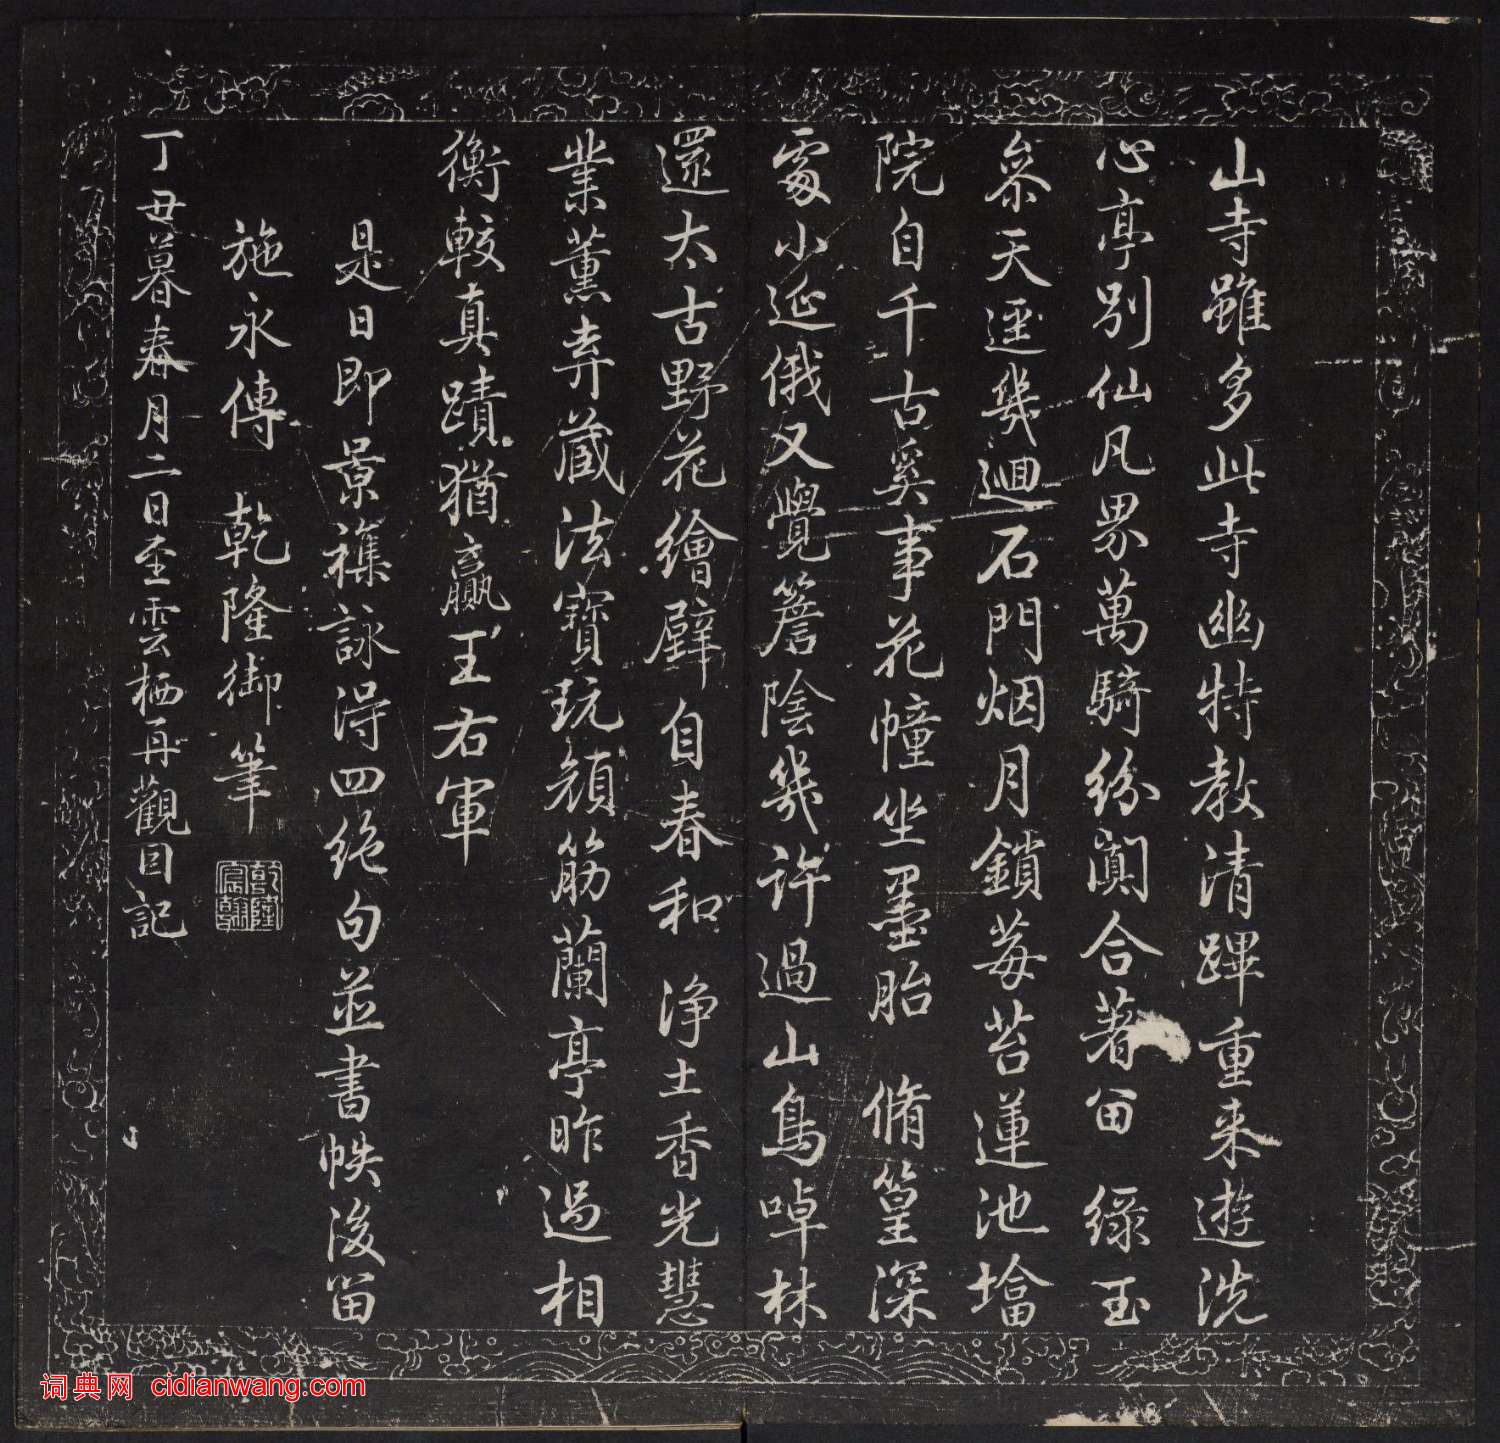 山寺雖多此寺幽特教清蹕重来遊洗
心亭別仙凡界萬騎紛闐合著留 綠玉
叅天逕幾迴石門烟月鎖莓苔蓮池墖
院自千古奚事花幢坐墨胎 脩篁深
處小延俄又覺簷陰幾許過山鳥啅林
還太古野花繪壁自春和 淨土香光慧
業薰弆藏法寶玩顔筋蘭亭昨過相
衡較真蹟猶贏王右軍
是日即景襍詠得四絶句並書帙後留
施永傳 乾隆御筆
乾隆宸翰
丁丑暮春月二日至雲栖再觀因記
词典网 cidianwang.com